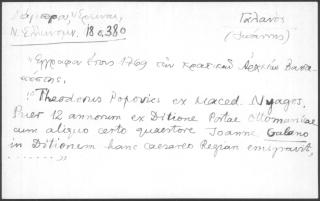 Λάμπρου, Σ. Έρευναι,
Ν. Ἑλληνομν. 18 σ. 380
Γαλανὸς
(Ἰωάννης)
Ἔγγραφα ἔτους 1769 τῶν κρατικῶν Ἀρχείων
"Theodorus Popovics ex Maced. Nyagos.
Puer 12 annorum ex Ditione Portae Ottomanicae
cum aliquo certo quaestore Joanne Galano
in Ditionem hanc caesareo Regiam emigravit,
......."